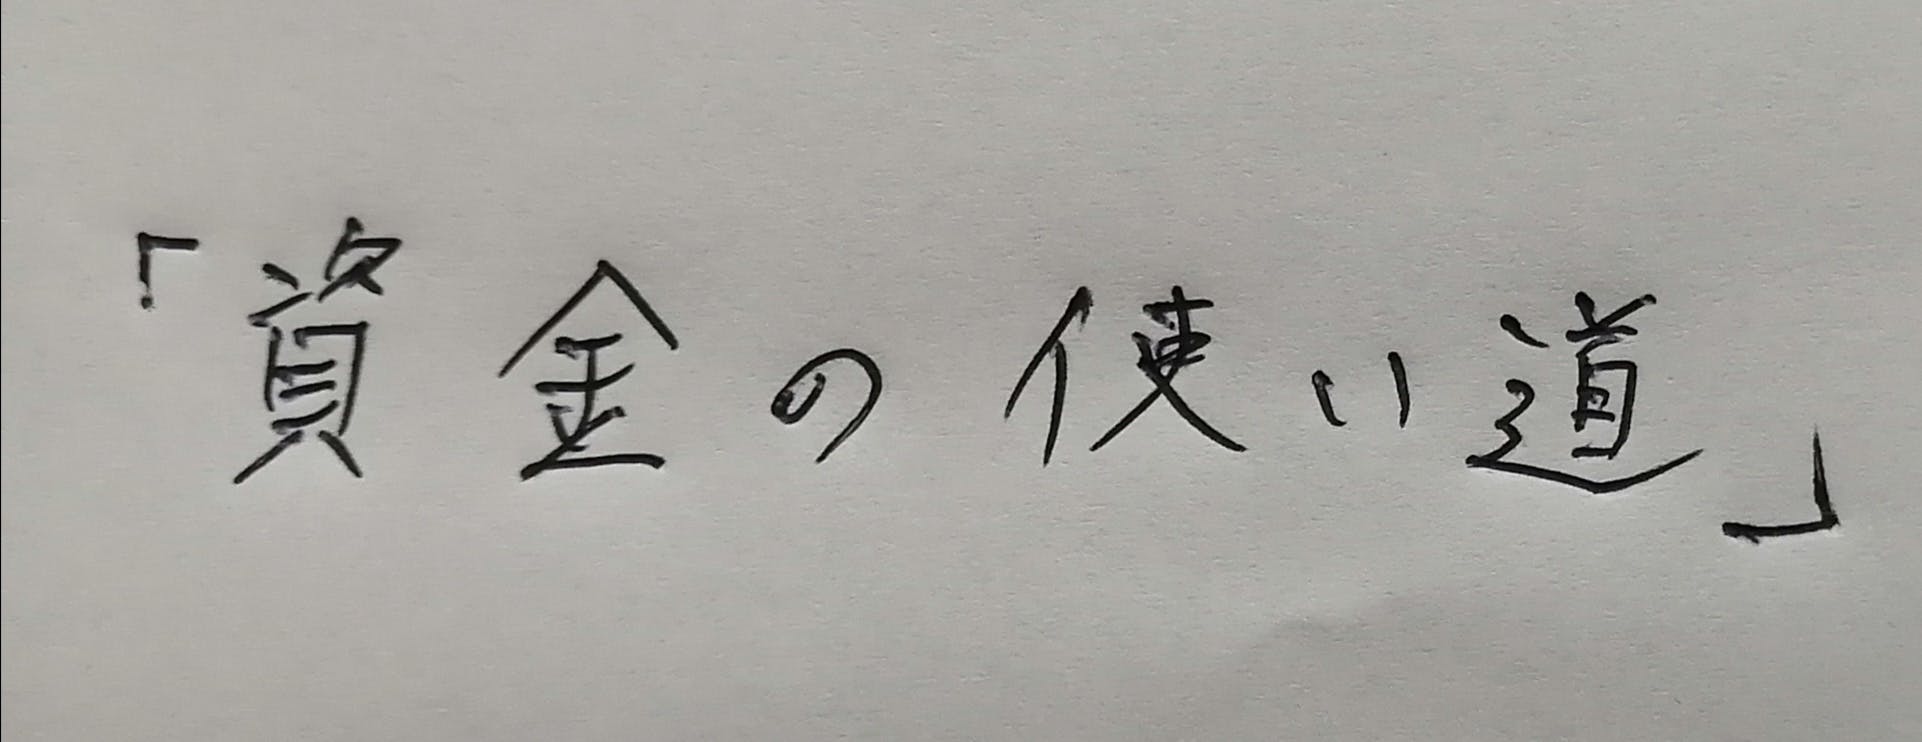 「資金の使い道」